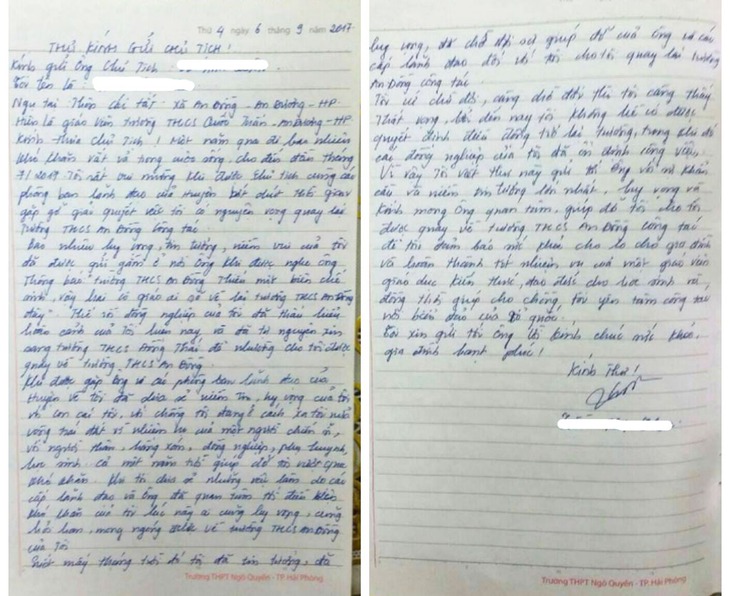 Thứ 4 ngày 6 tháng 9 năm 2017
THƯ KÍNH GỬI CHỦ TỊCH!
Kính gửi Ông Chủ Tịch
Tôi tên là
Ngụ tại Thôn Chí tất _ xã An Đồng _ An Dương _ HP.
Hiện là giáo viên trường THCS Quốc Tuấn _ An Dương _ HP.
Kính thưa Chủ Tịch! Một năm qua đi bao nhiêu
khó khăn vất vả trong cuộc sống, cho đến đầu tháng
7/2017 Tôi rất vui mừng khi được Chủ Tịch cùng các
phòng ban lãnh đạo của Huyện bớt chút thời gian
gặp gỡ giải quyết việc tôi có nguyện vọng quay lại
trường THCS An Đồng công tác.
Bao nhiêu hy vọng, tin tưởng, niềm vui của tôi
đã được gửi gắm ở nơi Ông khi được nghe ông
Thông báo "trường THCS An Đồng thiếu một biên chế
mới, vậy loại cô giáo ai sẽ về lại trường THCS An Đồng
đây". Thế rồi đồng nghiệp của tôi đã thấu hiểu
hoàn cảnh của tôi lúc này và đã tự nguyện xin
sang trường THCS Đồng Thái để nhường cho tôi được
quay về trường THCS An Đồng.
Khi được gặp ông và các phòng ban lãnh đạo của
Huyện về tôi đã chia sẻ niềm tin, hy vọng của tôi
với con cái tôi, với chồng tôi đang ở cách xa tôi nửa
vòng trái đất vì nhiệm vụ của một người chiến sĩ,
với người thân, hàng xóm, đồng nghiệp, phụ huynh,
học sinh cả một năm trời giúp đỡ tôi vượt qua
khó khăn. Khi tôi chia sẻ những việc làm do các
cấp lãnh đạo và Ông đã quan tâm tới điều kiện
khó khăn của tôi lúc này ai cũng hy vọng, cũng
hân hoan, mong ngóng được về trường THCS An Đồng
của tôi
Suốt mấy tháng trời đó tôi đã tin tưởng, đã
Trường THPT Ngô Quyền - TP. Hải Phòng
hy vọng, đã chờ đợi sự giúp đỡ của ông và các
cấp lãnh đạo đối với tôi cho tôi quay lại trường
An Đồng công tác.
Tôi cứ chờ đợi, càng chờ đợi thì tôi càng thấy
Thất vọng, bởi đến nay tôi không hề có được
quyết định điều động trở lại trường, trong khi đó
các đồng nghiệp của tôi đã ổn định công việc.
Vì vậy Tôi viết thư này gửi tới Ông với sự khẩn
cầu và niềm tin tưởng lớn nhất, hy vọng và
Kính mong ông quan tâm, giúp đỡ tôi cho tôi
được quay về trường THCS An Đồng công tác
để tôi đảm bảo sức khoẻ cho lo cho gia đình
và hoàn thành tốt nhiệm vụ của một giáo viên
giáo dục kiến thức, đạo đức cho học sinh và,
đồng thời giúp cho chồng tôi yên tâm công tác
nơi biển đảo của Tổ quốc.
Tôi xin gửi tới Ông lời kính chúc sức khoẻ,
gia đình hạnh phúc!
Kính thư!
Trường THPT Ngô Quyền - TP. Hải Phòng